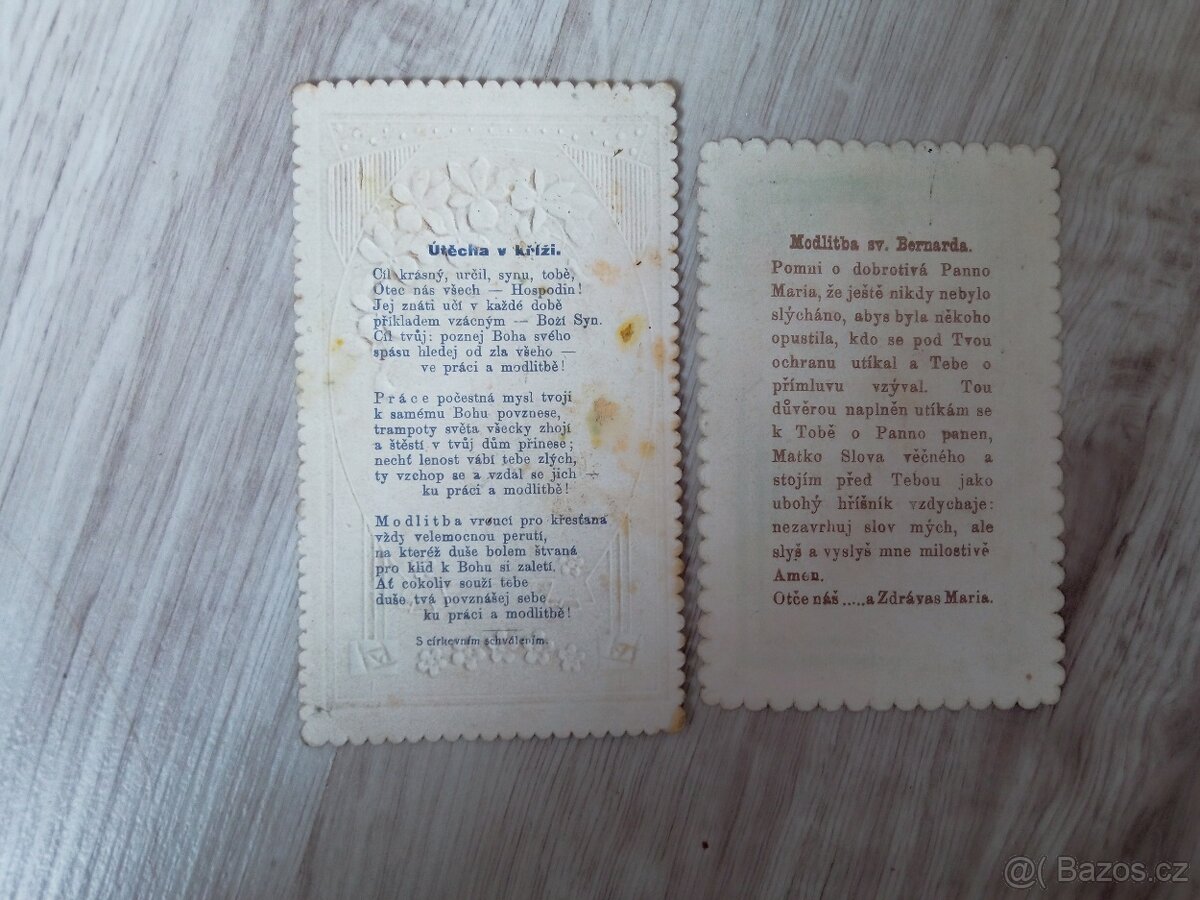 Útěcha v kříži.
Cíl krásný, určil, synu, tobě,
Otec nás všech — Hospodin!
Jej znáti učí v každé době
příkladem vzácným — Boží Syn.
Cíl tvůj: poznej Boha svého
spásu hledej od zla všeho —
ve práci a modlitbě!
Práce počestná mysl tvojí
k samému Bohu povznese,
trampoty světa všecky zhojí
a štěstí v tvůj dům přinese;
nechť lenost vábí tebe zlých,
ty vzchop se a vzdal se jich —
ku práci a modlitbě!
Modlitba vroucí pro křesťana
vždy velemocnou perutí,
na kteréž duše bolem štvaná
pro klid k Bohu si zaletí.
Ať cokoliv souží tebe
duše tvá povznášej sebe
ku práci a modlitbě!
S církevním schválením.
Modlitba sv. Bernarda.
Pomni o dobrotivá Panno
Maria, že ještě nikdy nebylo
slýcháno, abys byla někoho
opustila, kdo se pod Tvou
ochranu utíkal a Tebe o
přímluvu vzýval. Tou
důvěrou naplněn utíkám se
k Tobě o Panno panen,
Matko Slova věčného a
stojím před Tebou jako
ubohý hříšník vzdychaje:
nezavrhuj slov mých, ale
slyš a vyslyš mne milostivě
Amen.
Otče náš.....a Zdrávas Maria.
@( Bazos.cz